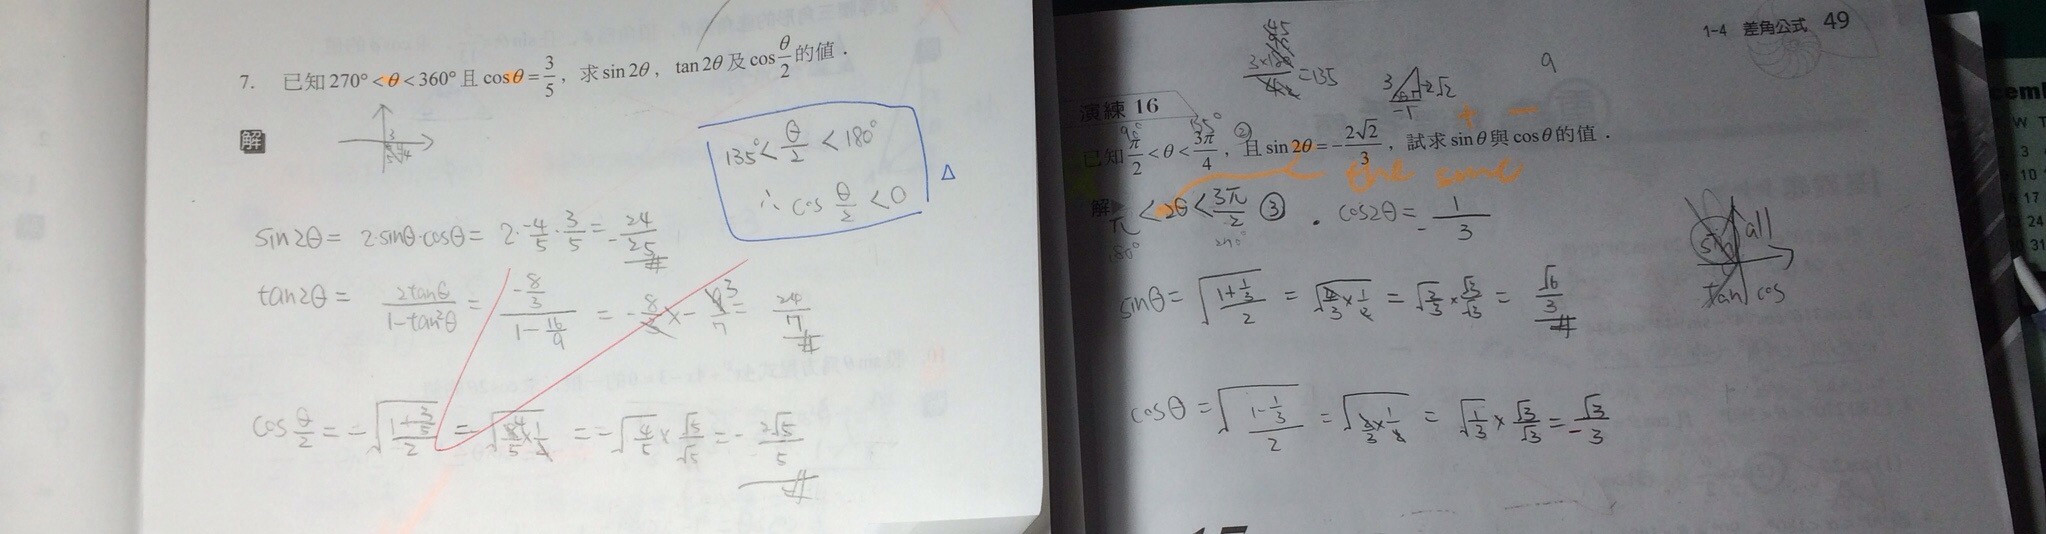 7. 已知 270° < θ < 360° 且 cosθ = 3/5, 求 sin 2θ, tan 2θ 及 cos θ/2 的值.
解
135° < θ/2 < 180°
∴ cos θ/2 < 0
Δ
sin2θ = 2·sinθ·cosθ = 2·-4/5·3/5 = -24/25 #
tan2θ = 2tanθ/(1-tan²θ) = (-8/3)/(1-16/9) = -8/3 × -9/7 3 = 24/7 #
cos θ/2 = -√((1+3/5)/2) = -√(8/5 4 × 1/2) = -√(4/5) × √5/√5 = -2√5/5 #
1-4 差角公式 49
45
3×180/4 = 135
3 2√2 -1
9
演練 16
90° 135° ② + -
已知 π/2 < θ < 3π/4, 且 sin 2θ = -2√2/3, 試求 sinθ 與 cosθ 的值.
the same
解 π < 2θ < 3π/2 ③ . cos2θ = -1/3
180° 270°
sin all
tan cos
sinθ = √((1+1/3)/2) = √(4/3 × 1/2) = √(2/3) × √3/√3 = √6/3 #
cosθ = √((1-1/3)/2) = √(2/3 × 1/2) = √(1/3) × √3/√3 = -√3/3